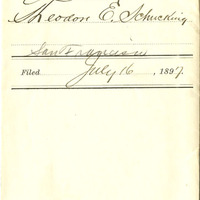 Theodor E. Schucking.
San Francisco
Filed July 16, 1897.